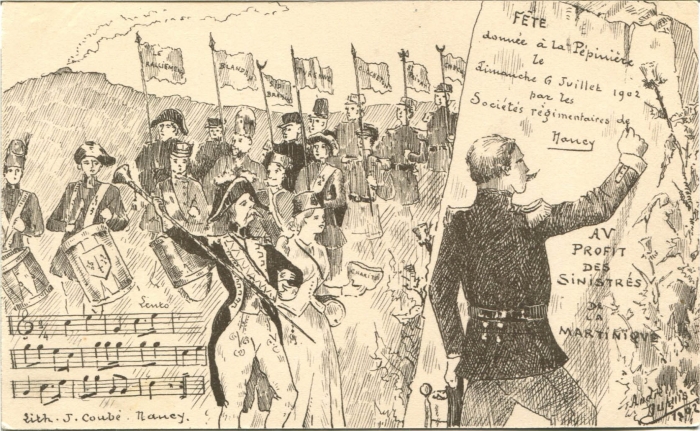 FÊTE
donnée à la Pépinière
le
dimanche 6 Juillet 1902
par les
Sociétés régimentaires de
Nancy
AU
PROFIT
DES
SINISTRÉS
DE
LA
MARTINIQUE
RALLIEMENT
BLANDAN
CHARITÉ
Lento
Lith. J. Coubé. Nancy.
André